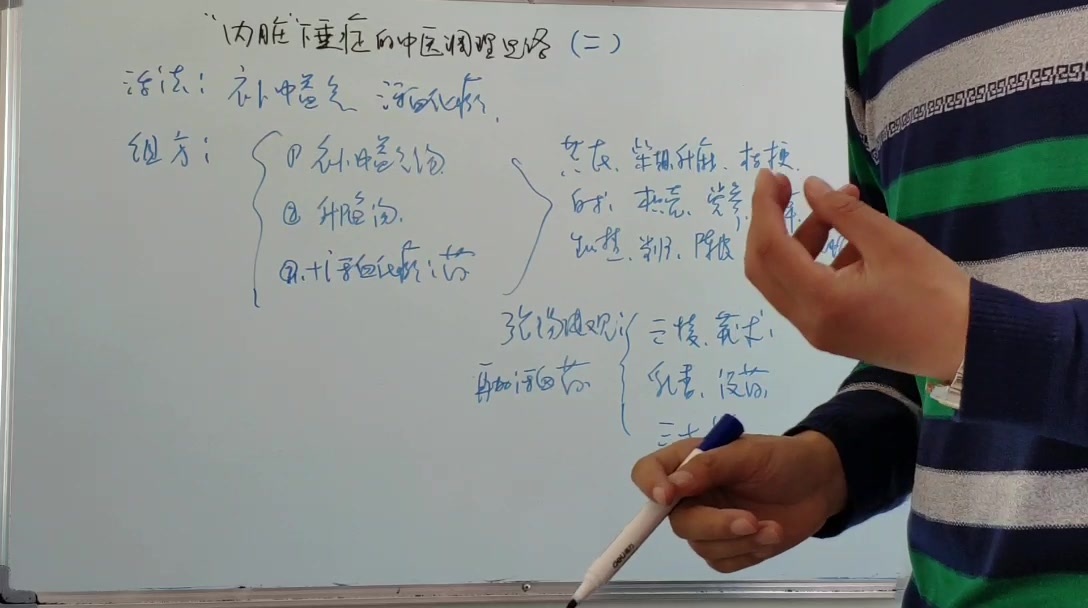 "内脏"下垂症的中医调理思路(二)
治法: 补中益气 活血化瘀.
组方:
① 补中益气汤
② 升陷汤.
③.十活血化瘀药
黄芪、柴胡、升麻、桔梗.
白术、枳壳、党参,
陈皮
再加活血药
三棱、莪术,
乳香、没药,
deli